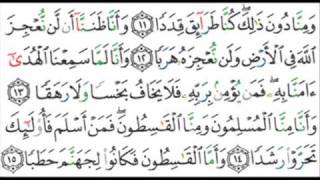 وَمِنَّا دُونَ ذَٰلِكَ ۖ كُنَّا طَرَآئِقَ قِدَدًا ﴿١١﴾ وَأَنَّا ظَنَنَّآ أَن لَّن نُّعْجِزَ
ٱللَّهَ فِى ٱلْأَرْضِ وَلَن نُّعْجِزَهُۥ هَرَبًا ﴿١٢﴾ وَأَنَّا لَمَّا سَمِعْنَا ٱلْهُدَىٰٓ
ءَامَنَّا بِهِۦ ۖ فَمَن يُؤْمِنۢ بِرَبِّهِۦ فَلَا يَخَافُ بَخْسًا وَلَا رَهَقًا ﴿١٣﴾
وَأَنَّا مِنَّا ٱلْمُسْلِمُونَ وَمِنَّا ٱلْقَٰسِطُونَ ۖ فَمَنْ أَسْلَمَ فَأُو۟لَٰٓئِكَ
تَحَرَّوْا۟ رَشَدًا ﴿١٤﴾ وَأَمَّا ٱلْقَٰسِطُونَ فَكَانُوا۟ لِجَهَنَّمَ حَطَبًا ﴿١٥﴾